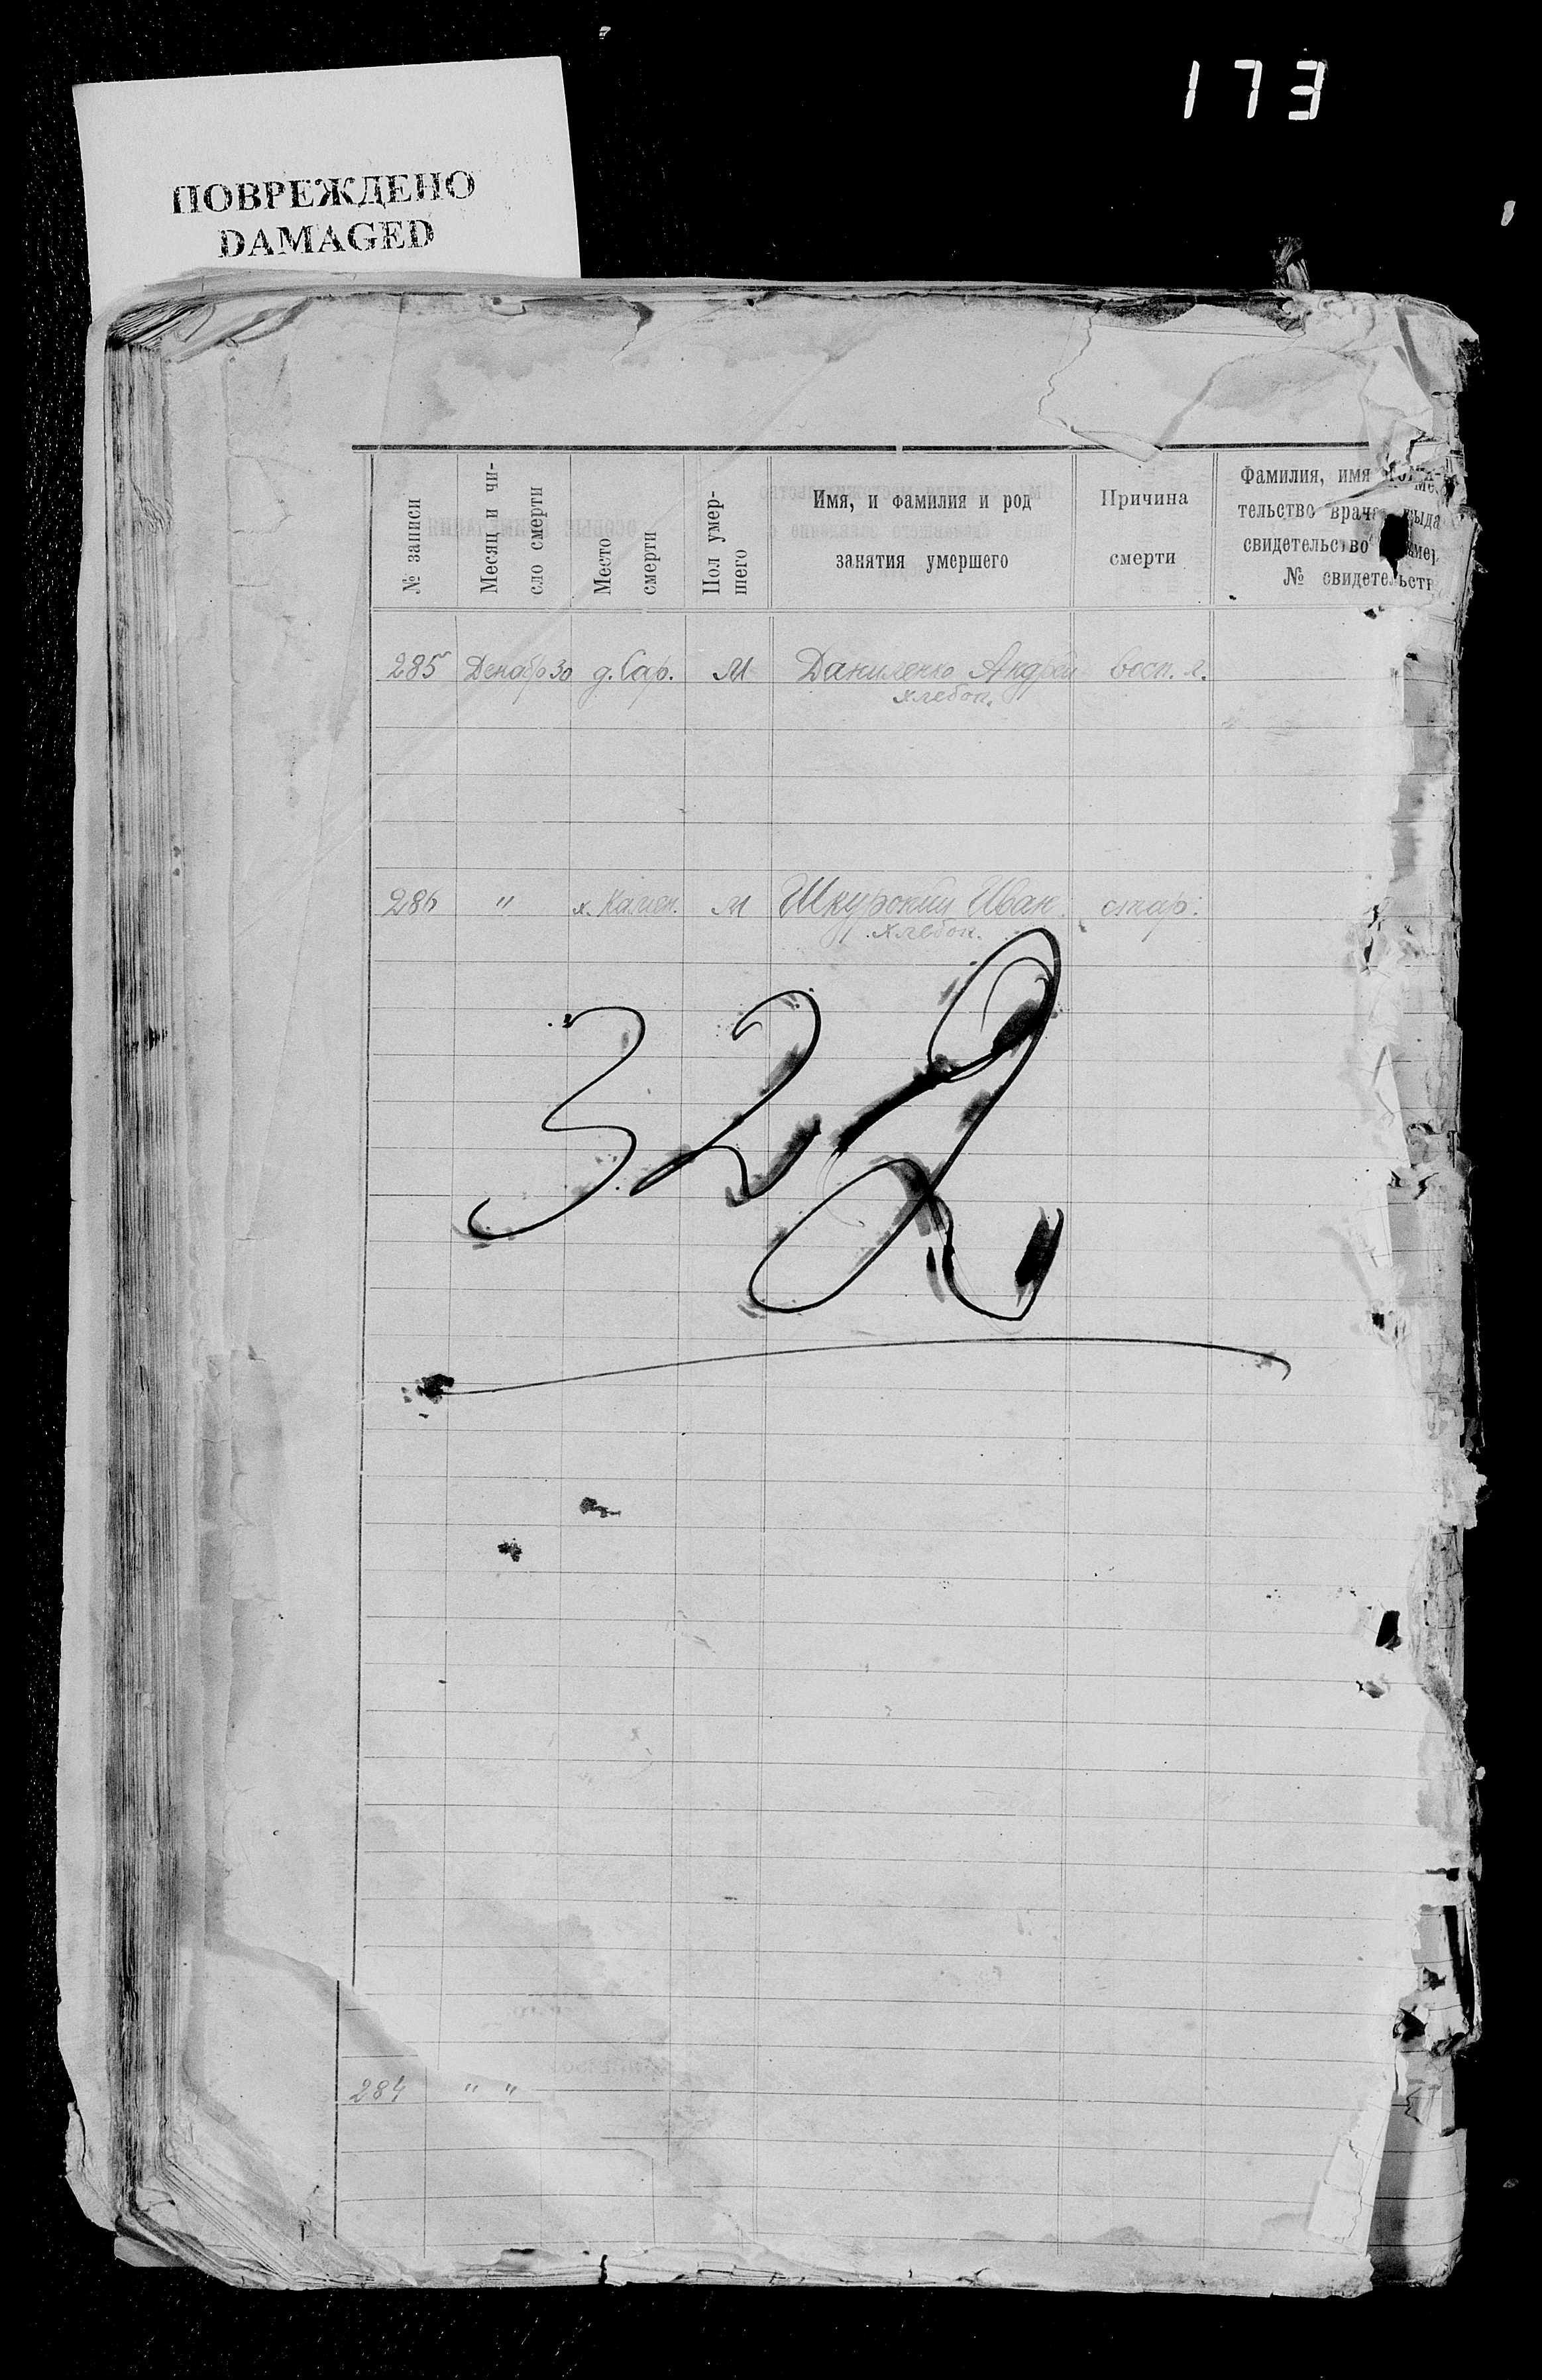 173
ПОВРЕЖДЕНО
DAMAGED
№ записи
Месяц и чи-
сло смерти
Место
смерти
Пол умер-
шего
Имя, и фамилия и род
занятия умершего
Причина
смерти
Фамилия, имя
тельство
свидетельство
№
285 Декабр 30 д. Сар. М Даниленко Андрей восп. л.
хлебоп.
286 " х. Камен. М Шкурский Иван стар.
хлебоп.
322
284 " "